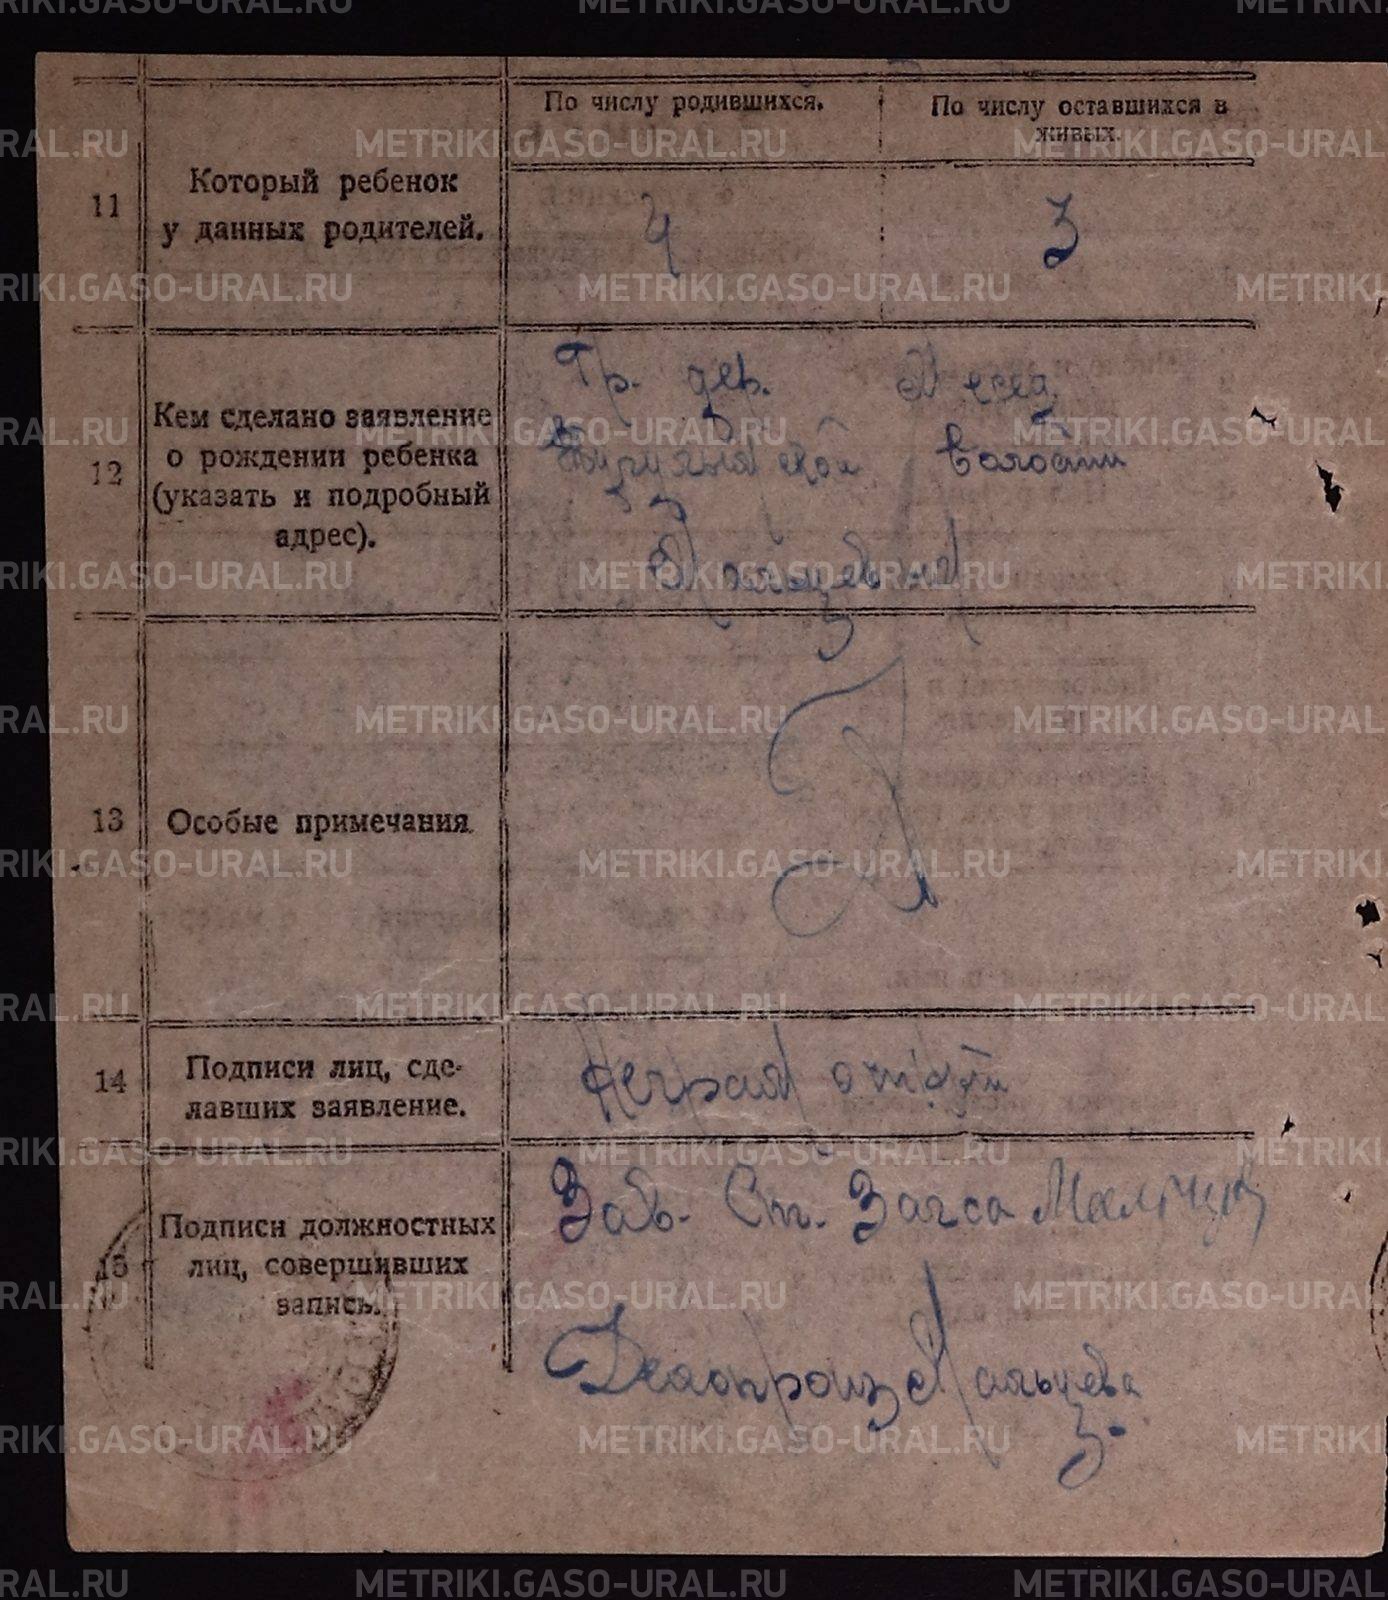 По числу родившихся.
По числу оставшихся в
живых.
11
Который ребенок
у данных родителей.
4
3
12
Кем сделано заявление
о рождении ребенка
(указать и подробный
адрес).
Гр. дер.
волости
13
Особые примечания.
14
Подписи лиц, сде-
лавших заявление.
15
Подписи должностных
лиц, совершивших
запись.
Зав. Ст. Загса
Делопроиз Мальцева
METRIKI.GASO-URAL.RU